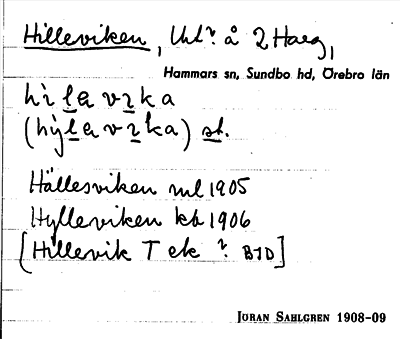 Hilleviken,
Hammars sn, Sundbo hd, Örebro län
hìlavıka
(hy̆lavıka) st.
Hållesviken ml 1905
Hylleviken kb 1906
[Hillevik T ek ? BJD]
JÖRAN SAHLGREN 1908-09